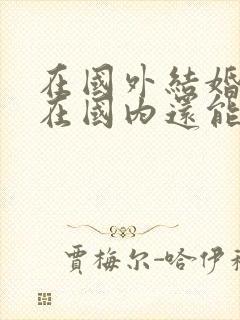 在國外結婚
在國内還能
賈梅尔-哈伊